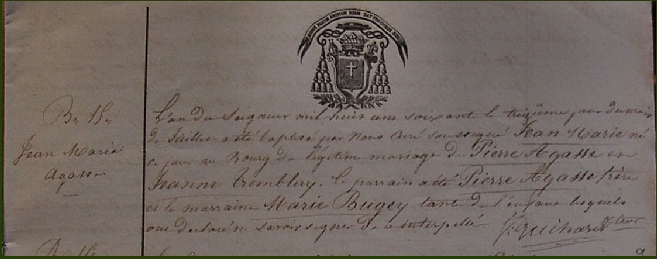 Jean Marie
Agasse
L'an du Seigneur mil huit cent soixante le treizième jour du mois
de Juillet a été baptisé par nous curé soussigné Jean Marie né
ce jour au Bourg du légitime mariage de Pierre Agasse et
Jeanne Tremblery. Le parrain a été Pierre Agasse frère
et la marraine Marie Bugey tante de l'enfant lesquels
ont déclaré ne savoir signer de ce interpellé